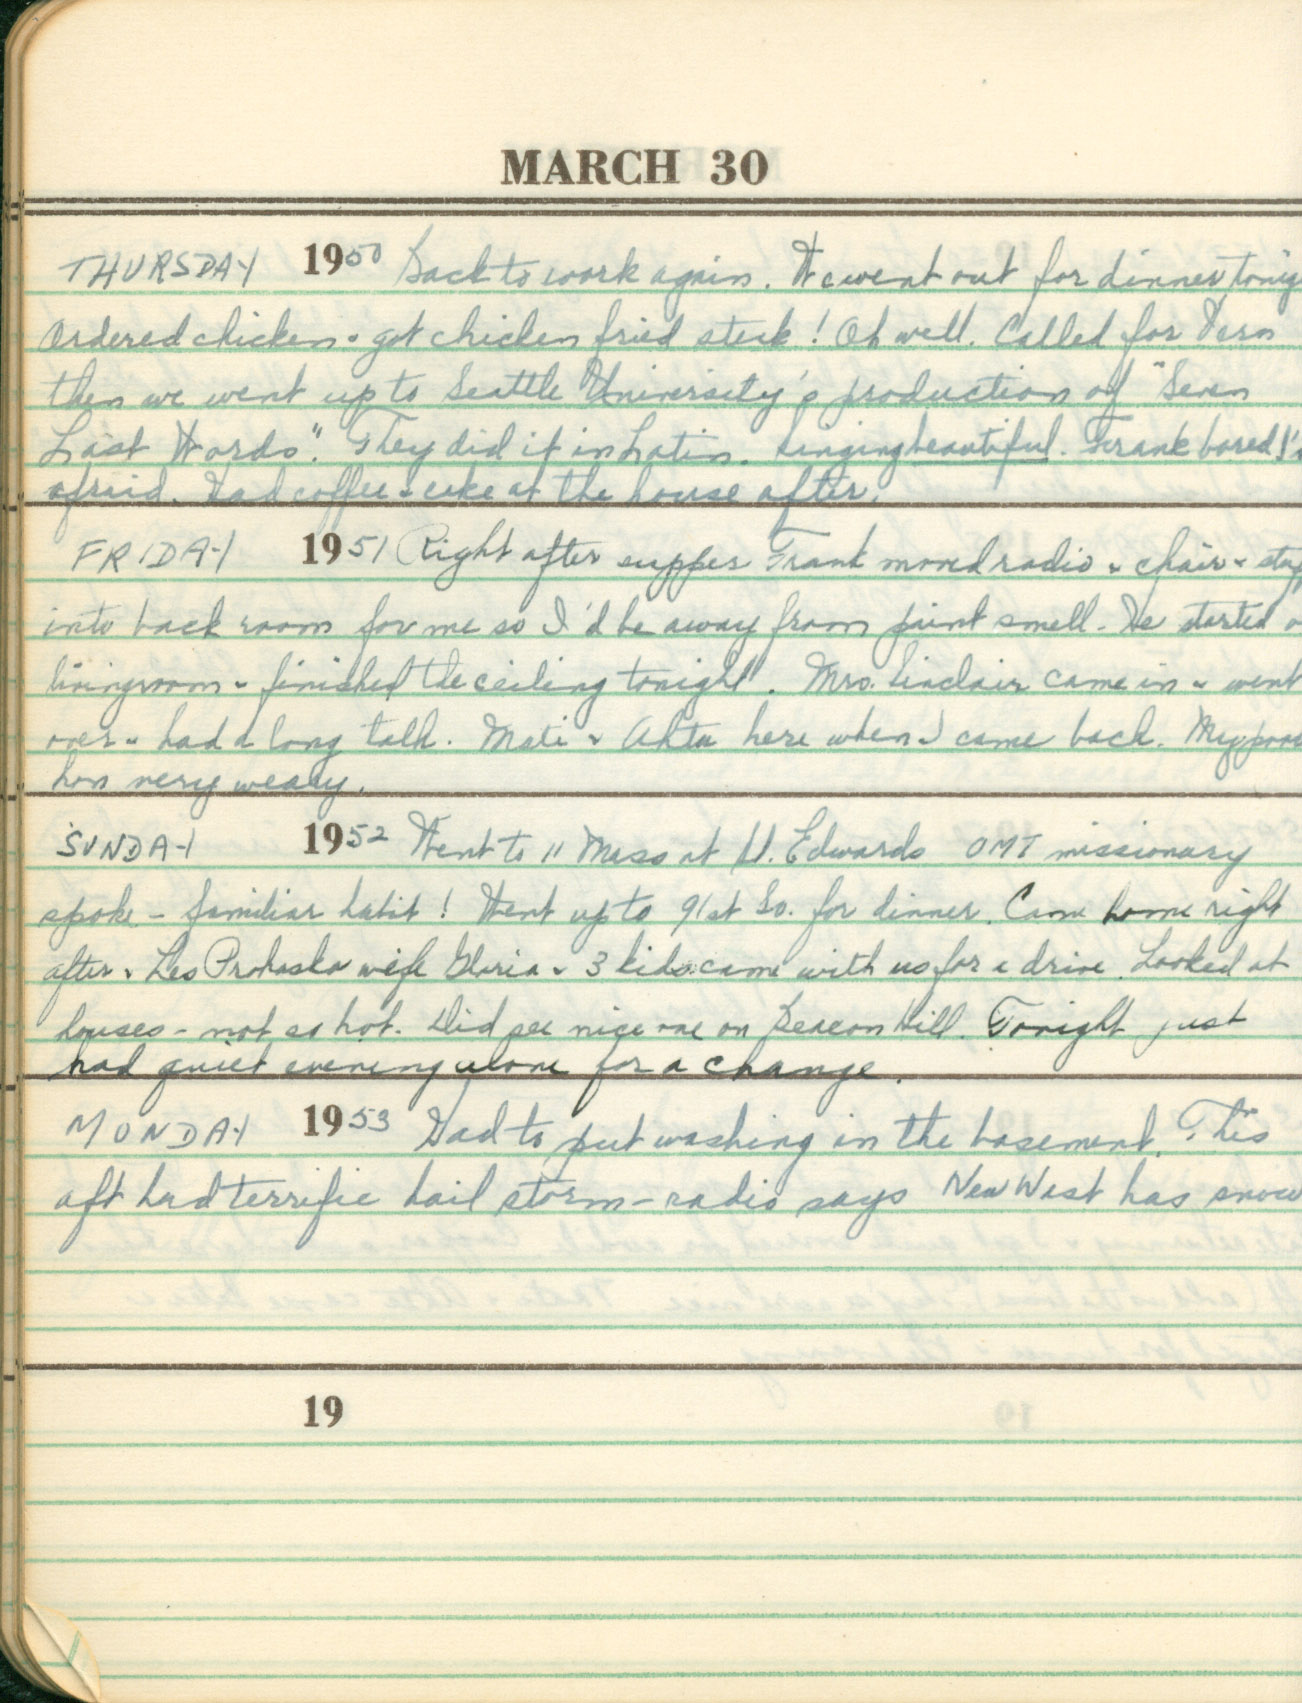 MARCH 30
THURSDAY 1950 Back to work again. We went out for dinner tonig
Ordered chicken & got chicken fried steak! Oh well. Called for Vern
then we went up to Seattle University's production of "Seven
Last Words". They did it in Latin. Singing beautiful. Frank bored I'm
afraid. Had coffee & cake at the house after.
FRIDAY 1951 Right after supper Frank moved radio & chair &
into back room for me so I'd be away from paint smell. He started
livingroom & finished the ceiling tonight. Mrs. Sinclair came in & went
over & had a long talk. Mati & Ahta here when I came back. My poor
hon very weary.
SUNDAY 1952 Went to 11 Mass at St. Edwards OMI missionary
spoke - familiar habit! Went up to 91st So. for dinner. Came home right
after & Les Prohaska wife Gloria & 3 kids came with us for a drive. Looked at
houses - not so hot. Did see nice one on Beacon Hill. Tonight just
had quiet evening alone for a change.
MONDAY 1953 Had to put washing in the basement. This
aft had terrific hail storm - radio says New West has snow
19